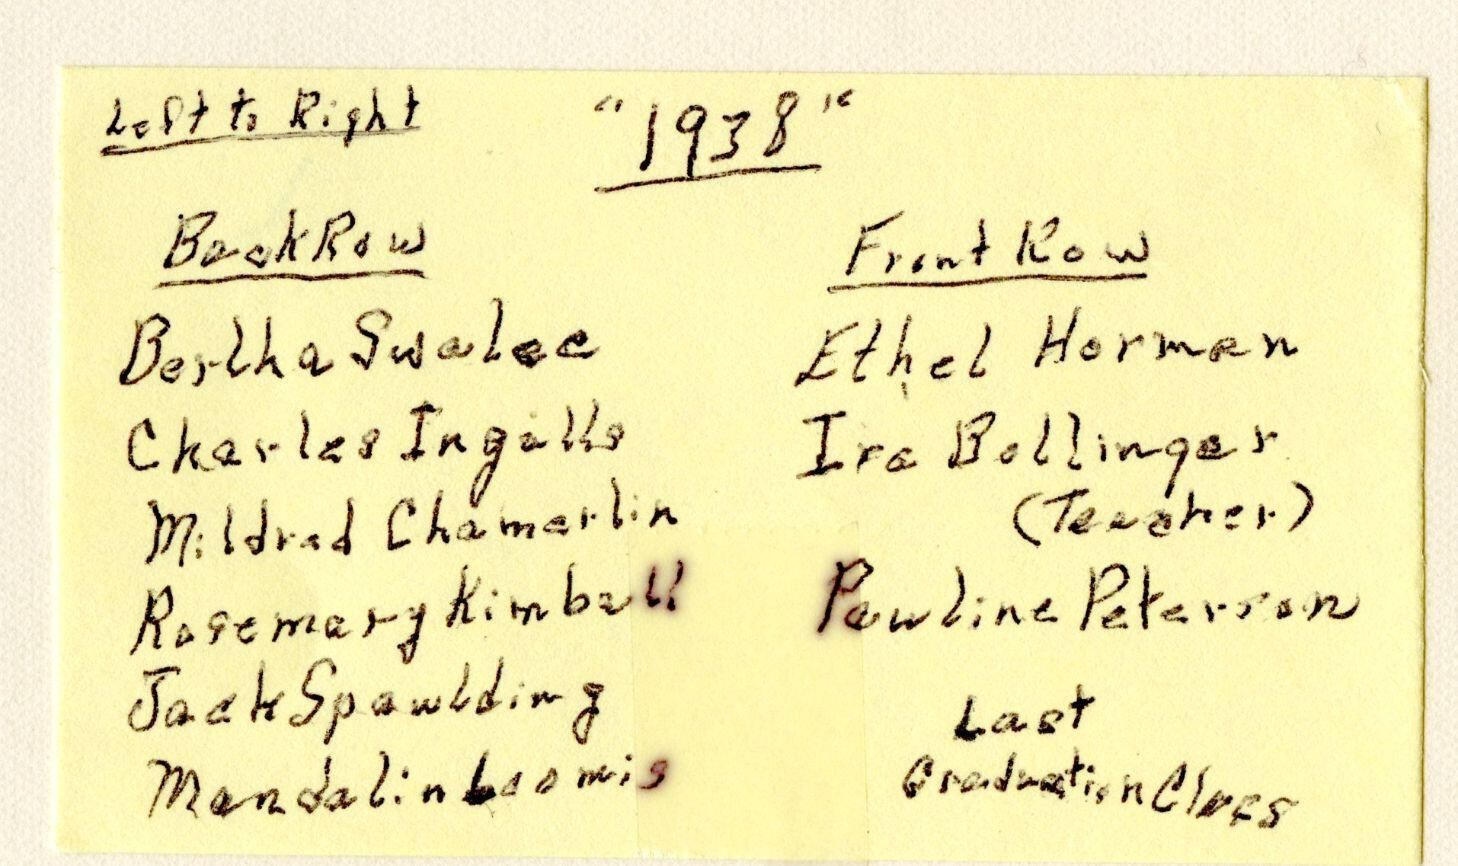 Left to Right
"1938"
Back Row
Bertha Swalee
Charles Ingalls
Mildred Chamerlin
Rosemary Kimball
Jack Spawlding
Mandalin Loomis
Front Row
Ethel Horman
Ira Bollinger
(Teacher)
Pauline Peterson
Last
Graduation Class